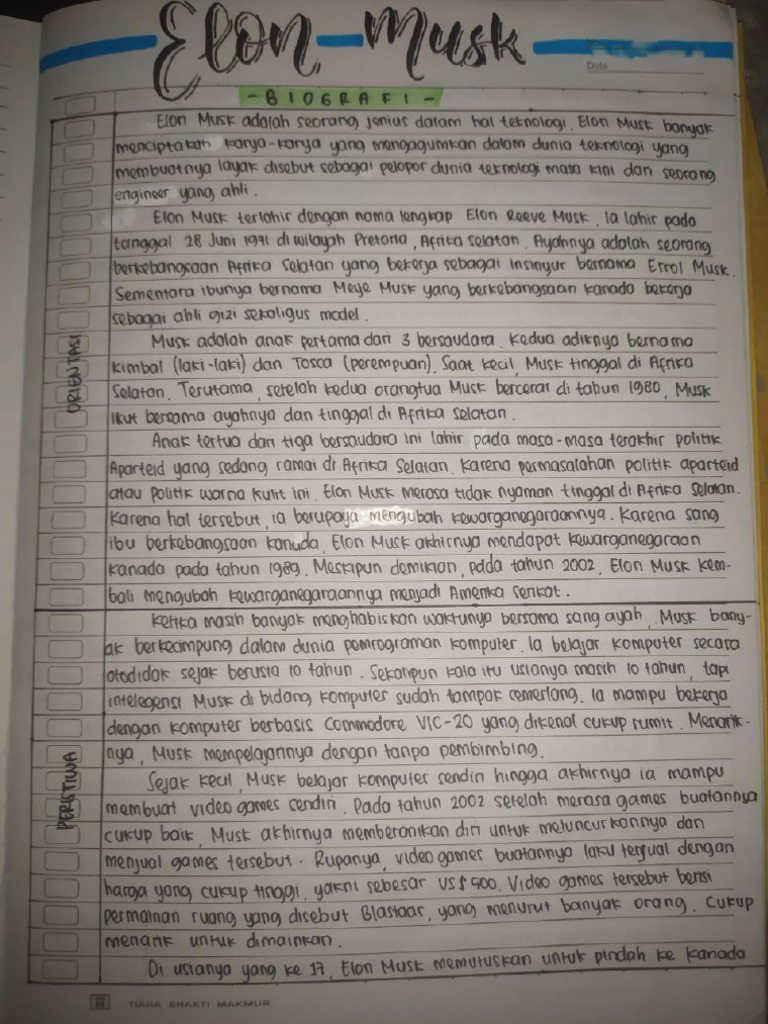 Elon Musk
Date
- BIOGRAFI -
Elon Musk adalah seorang jenius dalam hal teknologi. Elon Musk banyak
menciptakan karya-karya yang mengagumkan dalam dunia teknologi yang
membuatnya layak disebut sebagai pelopor dunia teknologi masa kini dan seorang
engineer yang ahli.
Elon Musk terlahir dengan nama lengkap Elon Reeve Musk. Ia lahir pada
tanggal 28 Juni 1971 di wilayah Pretoria, Afrika selatan. Ayahnya adalah seorang
berkebangsaan Afrika Selatan yang bekerja sebagai insinyur bernama Errol Musk.
Sementara ibunya bernama Meye Musk yang berkebangsaan kanada bekerja
sebagai ahli gizi sekaligus model.
Musk adalah anak pertama dari 3 bersaudara. Kedua adiknya bernama
Kimbal (laki-laki) dan Tosca (perempuan). Saat kecil, Musk tinggal di Afrika
Selatan. Terutama, setelah kedua orangtua Musk bercerai di tahun 1980, Musk
ikut bersama ayahnya dan tinggal di Afrika selatan.
ORIENTASI
Anak tertua dari tiga bersaudara ini lahir pada masa-masa terakhir politik
Aparteid yang sedang ramai di Afrika Selatan. Karena permasalahan politik aparteid
atau politik warna kulit ini, Elon Musk merasa tidak nyaman tinggal di Afrika Selatan.
Karena hal tersebut, ia berupaya mengubah kewarganegaraannya. Karena sang
ibu berkebangsaan kanada, Elon Musk akhirnya mendapat kewarganegaraan
kanada pada tahun 1989. Meskipun demikian, pada tahun 2002, Elon Musk kem-
bali mengubah kewarganegaraannya menjadi Amerika serikat.
Ketika masih banyak menghabiskan waktunya bersama sang ayah, Musk bany-
ak berkecampung dalam dunia pemrograman komputer. Ia belajar komputer secara
otodidak sejak berusia 10 tahun. Sekalipun kala itu usianya masih 10 tahun, tapi
intelegensi Musk di bidang komputer sudah tampak cemerlang. Ia mampu bekerja
dengan komputer berbasis Commodore VIC-20 yang dikenal cukup rumit. Menarik-
nya, Musk mempelajarinya dengan tanpa pembimbing.
PERISTIWA
Sejak kecil, Musk belajar komputer sendiri hingga akhirnya ia mampu
membuat video games sendiri. Pada tahun 2002 setelah merasa games buatannya
cukup baik, Musk akhirnya memberanikan diri untuk meluncurkannya dan
menjual games tersebut. Rupanya, video games buatannya laku terjual dengan
harga yang cukup tinggi, yakni sebesar US$ 500. Video games tersebut berisi
permainan ruang yang disebut Blastaar, yang menurut banyak orang. Cukup
menarik untuk dimainkan.
Di usianya yang ke 17, Elon Musk memutuskan untuk pindah ke Kanada
TIARA BHAKTI MAKMUR